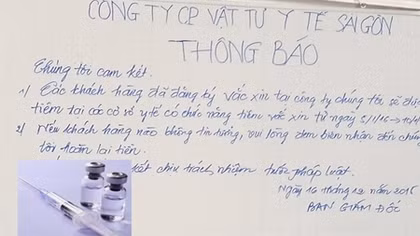 CÔNG TY CP VẬT TƯ Y TẾ SÀI GÒN
THÔNG BÁO
Chúng tôi cam kết.
1/ Các khách hàng đã đăng ký vắc xin tại công ty chúng tôi sẽ
tiêm tại các cơ sở y tế có chức năng tiêm vắc xin từ ngày
2/ Nếu khách hàng nào không tin tưởng, vui lòng đem biên nhận đến chúng
tôi hoàn lại tiền.
kết chịu trách nhiệm trước pháp luật.
Ngày 16 tháng 12 năm 2015
BAN GIÁM ĐỐC